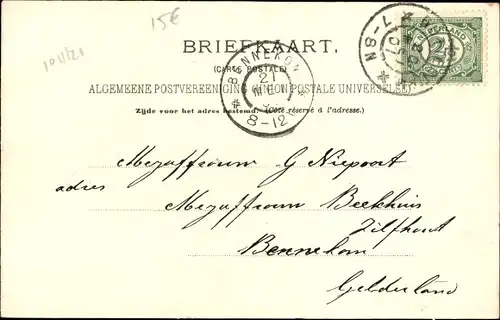 15€
1011/21
BRIEFKAART.
(CARTE POSTALE)
ALGEMEENE POSTVEREENIGING (UNION POSTALE UNIVERSELLE)
Zijde voor het adres bestemd. (Côté réservé à l'adresse.)
BENNEKOM
21
8-12
7-8N
2½
Mejuffrouw G Niepoort
adres Mejuffrouw Beekhuis
Zilfhout
Bennekom
Gelderland